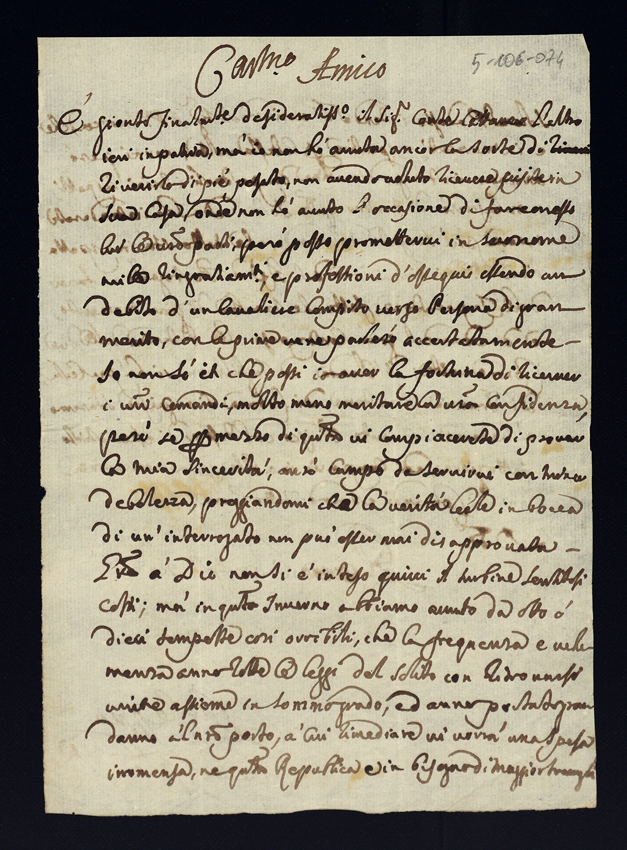 Carmo Amico
5-106-074
É gionto finalmte desideratisso il Sigr Conte l'altro
ieri in palude, ma io non hó avuta ancor la sorte di
riverirlo di piè posato, non avendo voluto ricevere visite in
sua Casa, onde non hó avuto l'occasione di far con esso
lui le vre parti, peró posso promettervi in suo nome
mille ringratiamti, e professioni d'ossequio essendo un
debito d'un Cavaliere Compito verso Persona di gran
merito, con le prime ve ne parleró accertatamente –
Io non só che che possi io aver la fortuna di ricever
i vri comandi, molto meno meritare la vra Confidenza,
peró se p mezzo di questa vi Compiacerete di provar
la mia sincerità, avró Campo de servirvi con minor
debolezza, preggiandomi che la verità Cale in bocca
di un' interrogato non puó esser mai disapprovata –
Lode á Dio non si é inteso quivi il turbine sentitosi
costì; má in questo Inverno abbiamo avuto da otto ó
dieci tempeste cosí orribili, che la frequenza e vehe-
menza anno rotte le leggi del solito con
unite assieme in sommo grado, ed anno portato gran
danno al nro porto, a' cui rimediare vi vorrá una spesa
immensa, ne questa Republica e in bisogno di maggior travagli